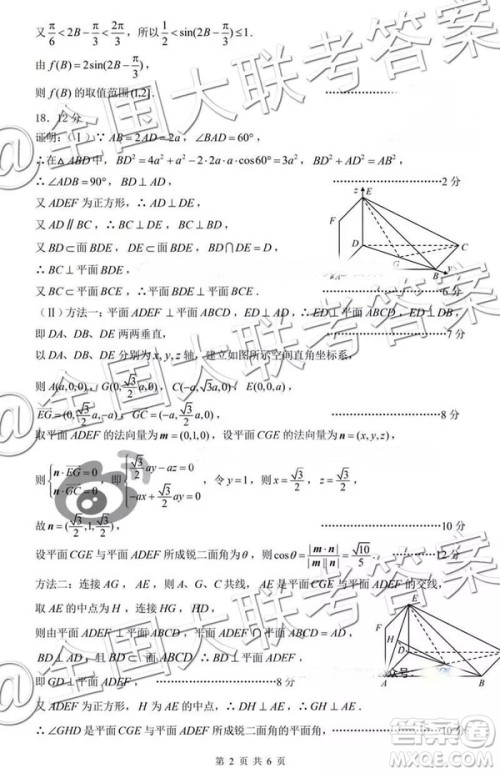 又π/6<2B-π/3<2π/3，所以1/2<sin(2B-π/3)≤1.
由 f(B)=2sin(2B-π/3)，
则 f(B) 的取值范围(1,2].
18．12 分
证明：（Ⅰ）∵ AB=2AD=2a，∠BAD=60°，
∴在△ABD中，BD²=4a²+a²-2·2a·a·cos60°=3a²，BD²+AD²=AB²，
∴∠ADB=90°，BD⊥AD， 2 分
又 ADEF 为正方形，∴AD⊥DE，
又 AD∥BC，∴BC⊥DE，BC⊥BD，
又 BD⊂面BDE，DE⊂平面BDE，BD∩DE=D，
∴BC⊥平面BDE，
又 BC⊂平面BCE，∴平面BDE⊥平面BCE． 6分
（Ⅱ）方法一：平面ADEF⊥平面ABCD，DE⊥AD，∴ED⊥平面ABCD，∴ED⊥BD．
即 DA、DB、DE 两两垂直， 7分
以 DA、DB、DE 分别为 x, y, z 轴，建立如图所示空间直角坐标系，
则 A(a,0,0)，G(0,√3/2 a,0)，C(-a,√3a,0)，E(0,0,a)，
EG=(0,√3/2 a,-a)，GC=(-a,√3/2 a,0)， 8分
取平面 ADEF 的法向量为 m=(0,1,0)，设平面 CGE 的法向量为 n=(x,y,z)，
则{n·EG=0 n·GC=0，即{√3/2 ay-az=0 -ax+√3/2 ay=0，令 y=1，则 x=√3/2，z=√3/2，
故 n=(√3/2,1,√3/2)， 10分
设平面 CGE 与平面 ADEF 所成锐二面角为θ，则cosθ=|m·n|/|m||n|=√10/5． 12分
方法二：连接 AG，AE，则 A、G、C 共线，AE 是平面 CGE 与平面 ADEF 的交线，
取 AE 的中点为 H，连接 GH，HD，
则由平面 ADEF⊥平面 ABCD，平面 ADEF∩平面 ABCD=AD，
BD⊥AD，且 BD⊂面 ABCD ∴BD⊥平面 ADEF，
即 GD⊥平面 ADEF， 8分
又 ADEF 为正方形，H 为 AE 的中点，∴DH⊥AE，∴GH⊥AE，
∴∠GHD 是平面 CGE 与平面 ADEF 所成锐二面角的平面角， 10分
第 2 页 共 6 页
@全国大联考答案